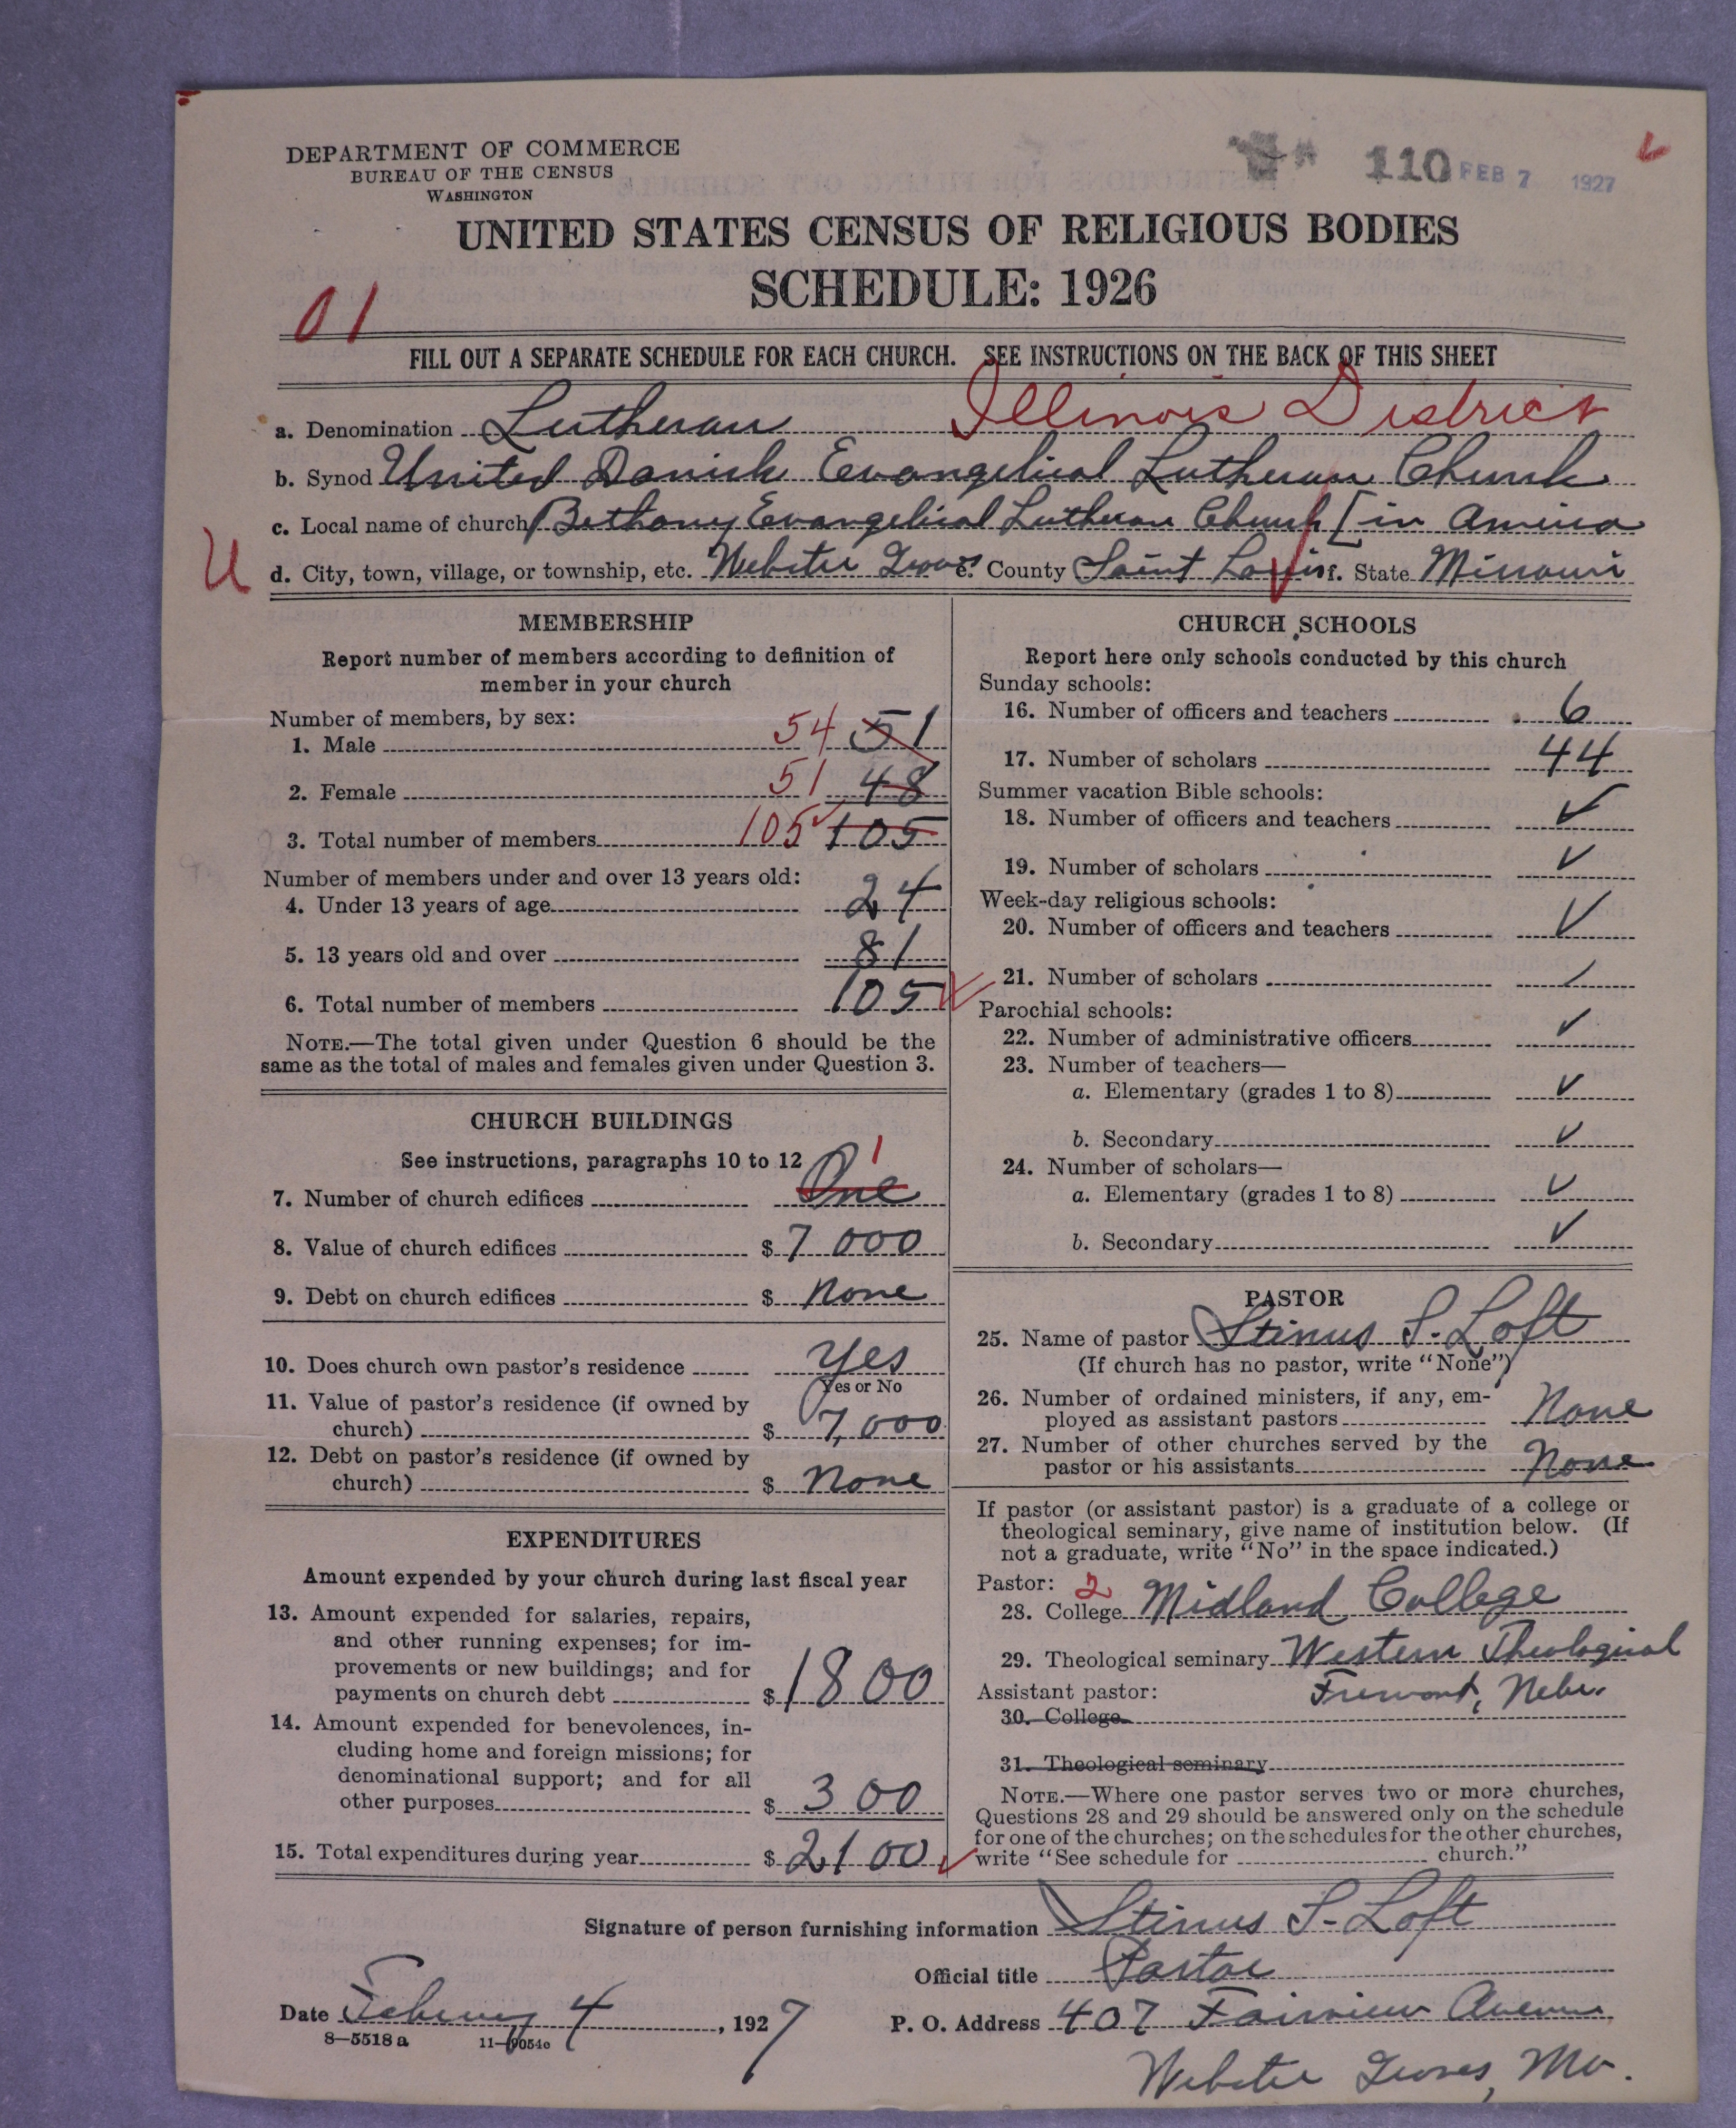 DEPARTMENT OF COMMERCE
BUREAU OF THE CENSUS
WASHINGTON
110 FEB 7 1927
UNITED STATES CENSUS OF RELIGIOUS BODIES
SCHEDULE: 1926
01
FILL OUT A SEPARATE SCHEDULE FOR EACH CHURCH. SEE INSTRUCTIONS ON THE BACK OF THIS SHEET
a. Denomination Lutheran Illinois District
b. Synod United Danish Evangelical Lutheran Church
c. Local name of church Bethany Evangelical Lutheran Church [in America
U
d. City, town, village, or township, etc. Webster Groves e. County Saint Louis f. State Missouri
MEMBERSHIP
Report number of members according to definition of
member in your church
Number of members, by sex:
1. Male 54 51
2. Female 51 48
3. Total number of members 105 105
Number of members under and over 13 years old:
4. Under 13 years of age 24
5. 13 years old and over 81
6. Total number of members 105
NOTE.—The total given under Question 6 should be the
same as the total of males and females given under Question 3.
CHURCH BUILDINGS
See instructions, paragraphs 10 to 12
7. Number of church edifices One 1
8. Value of church edifices $ 7000
9. Debt on church edifices $ None
10. Does church own pastor's residence Yes
Yes or No
11. Value of pastor's residence (if owned by
church) $ 7,000
12. Debt on pastor's residence (if owned by
church) $ None
EXPENDITURES
Amount expended by your church during last fiscal year
13. Amount expended for salaries, repairs,
and other running expenses; for im-
provements or new buildings; and for
payments on church debt $ 1800
14. Amount expended for benevolences, in-
cluding home and foreign missions; for
denominational support; and for all
other purposes $ 300
15. Total expenditures during year $ 2100
CHURCH SCHOOLS
Report here only schools conducted by this church
Sunday schools:
16. Number of officers and teachers 6
17. Number of scholars 44
Summer vacation Bible schools:
18. Number of officers and teachers ✓
19. Number of scholars ✓
Week-day religious schools:
20. Number of officers and teachers ✓
21. Number of scholars ✓
Parochial schools:
22. Number of administrative officers ✓
23. Number of teachers—
a. Elementary (grades 1 to 8) ✓
b. Secondary ✓
24. Number of scholars—
a. Elementary (grades 1 to 8) ✓
b. Secondary ✓
PASTOR
25. Name of pastor Stinus S. Loft
(If church has no pastor, write "None")
26. Number of ordained ministers, if any, em-
ployed as assistant pastors None
27. Number of other churches served by the
pastor or his assistants None
If pastor (or assistant pastor) is a graduate of a college or
theological seminary, give name of institution below. (If
not a graduate, write "No" in the space indicated.)
Pastor: 2
28. College Midland College
29. Theological seminary Western Theological
Assistant pastor: Fremont, Nebr.
30. College
31. Theological seminary
NOTE.—Where one pastor serves two or more churches,
Questions 28 and 29 should be answered only on the schedule
for one of the churches; on the schedules for the other churches,
write "See schedule for church."
Signature of person furnishing information Stinus S. Loft
Official title Pastor
Date February 4, 1927
P. O. Address 407 Fairview Avenue
8—5518 a 11—9054c
Webster Groves, Mo.